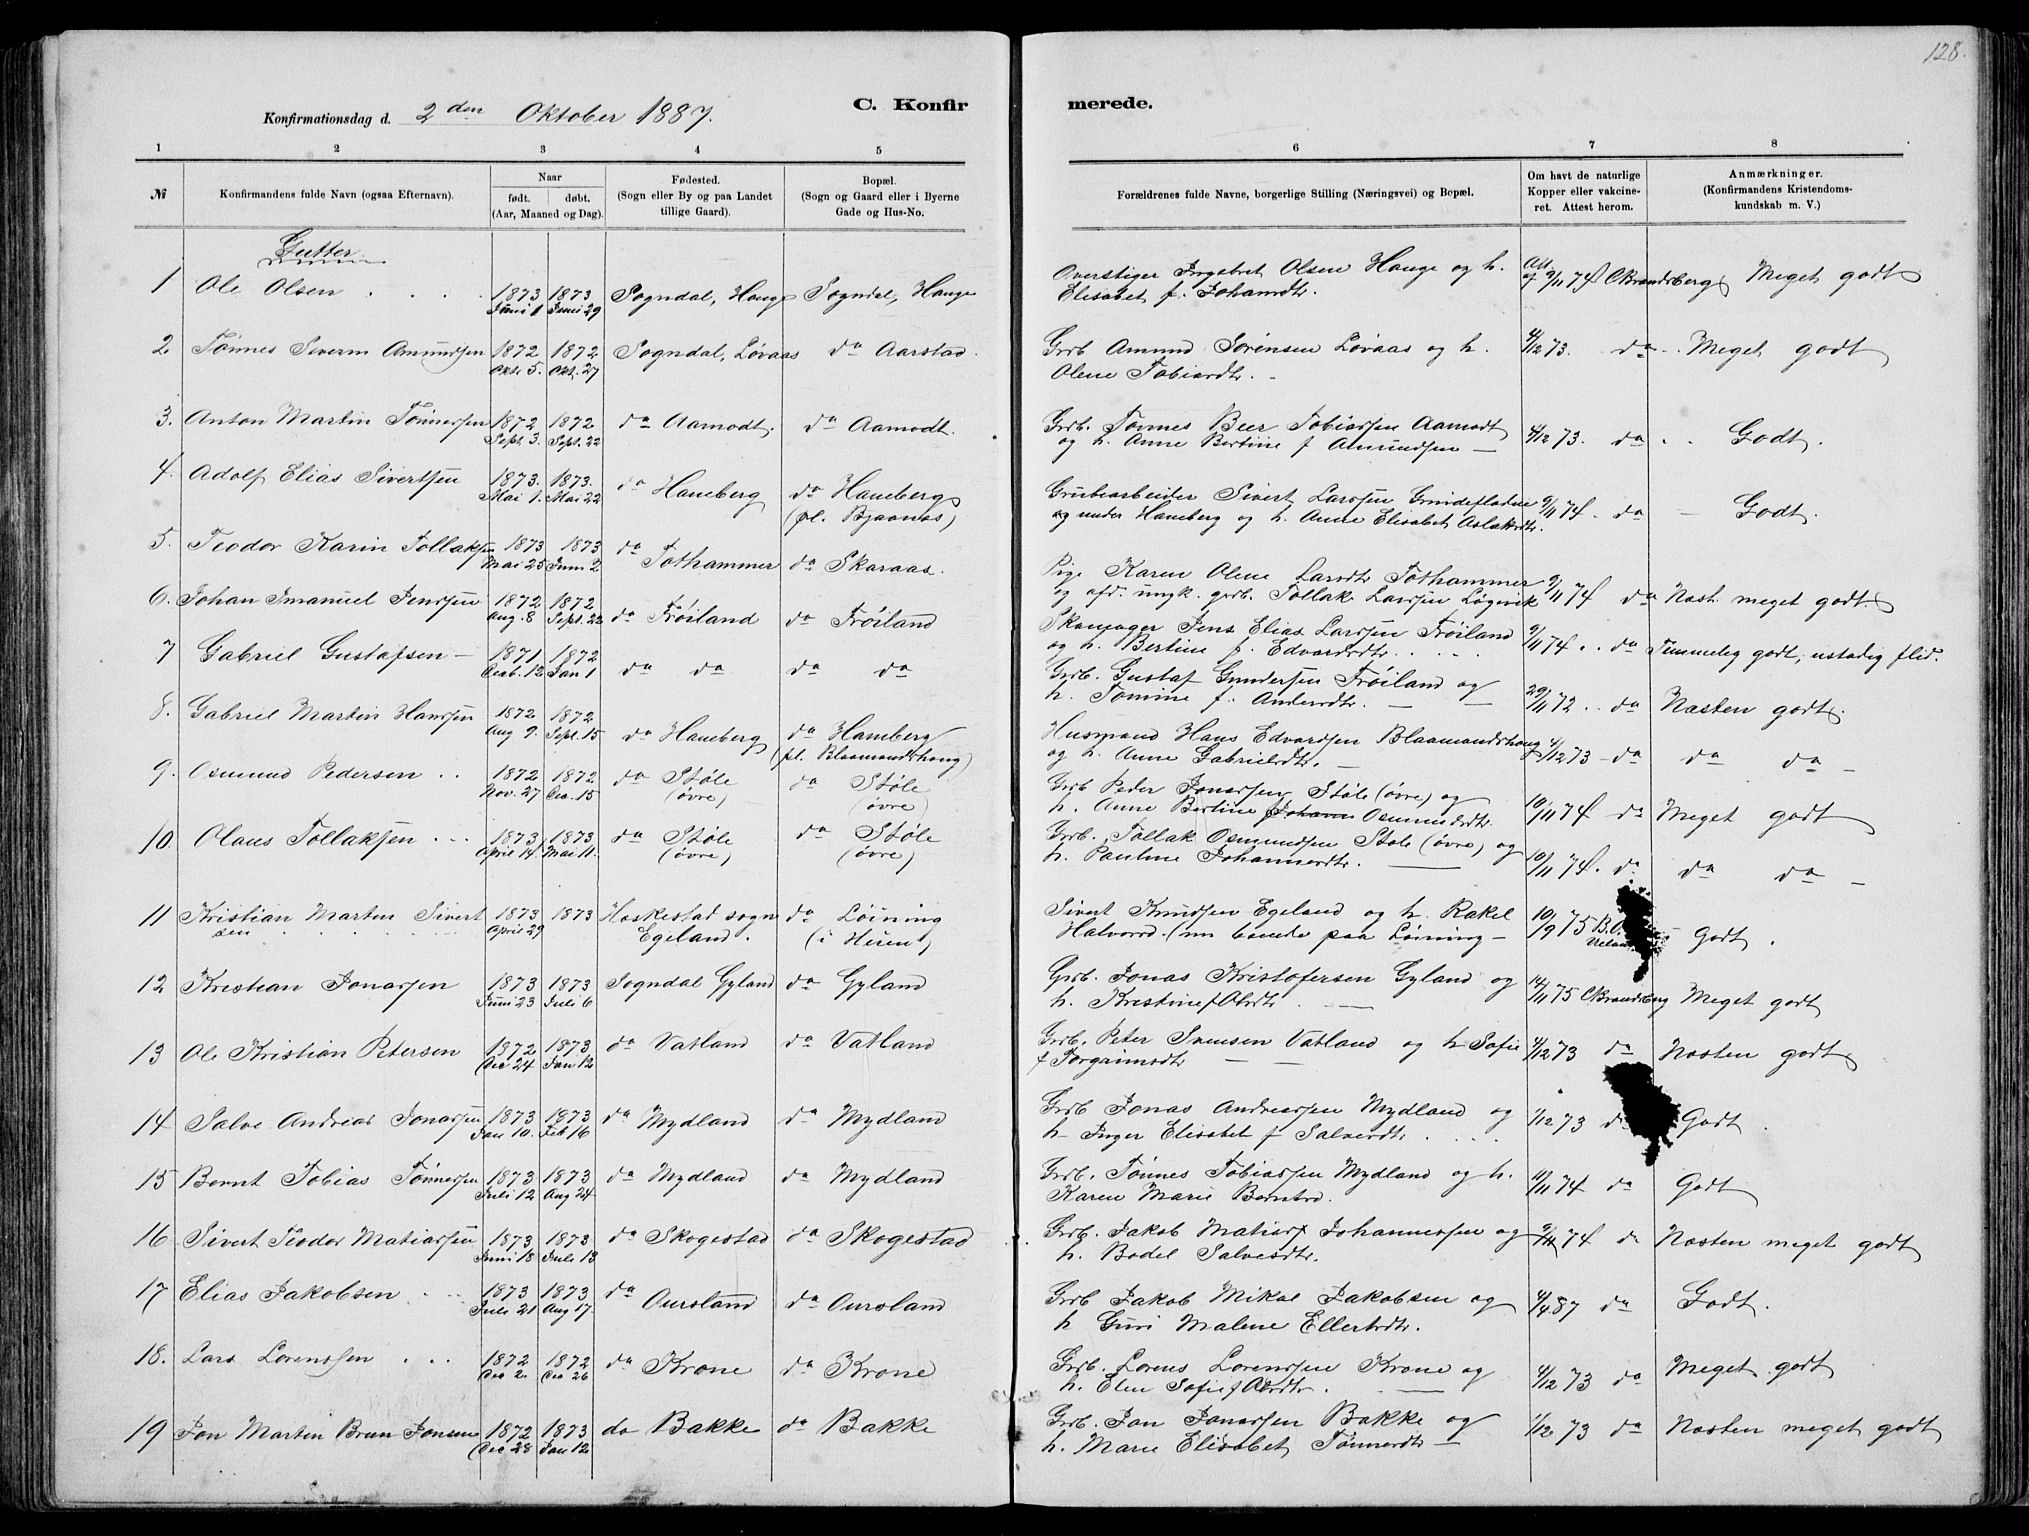 128.
C. Konfirmerede.
Konfirmationsdag d. 2den Oktober 1887.
1 2 3 4 5 6 7 8
№
Konfirmandens fulde Navn (ogsaa Efternavn).
Naar
født. døbt.
(Aar, Maaned og Dag).
Fødested.
(Sogn eller By og paa Landet
tillige Gaard).
Bopæl.
(Sogn og Gaard eller i Byerne
Gade og Hus-No.
Forældrenes fulde Navne, borgerlige Stilling (Næringsvei) og Bopæl.
Om havt de naturlige
Kopper eller vakcine-
ret. Attest herom.
Anmærkninger.
(Konfirmandens Kristendoms-
kundskab m. V.)
Gutter
1 Ole Olsen 1873 Juni 1 1873 Juni 29 Sogndal, Hauge Sogndal, Hauge
Overstiger Ingebret Olsen Hauge og h.
Elisabet f. Johansdtr.
Att. af 9/11 74 C Brandsberg Meget godt
2 Tønnes Severin Amundsen 1872 Okt. 5. 1872 Okt. 27 Sogndal, Løvaas do Aarstad.
Grdb Amund Sørensen Løvaas og h.
Olene Tobiasdtr.
4/12 73. do Meget godt
3. Anton Martin Tønnessen 1872 Sept. 3. 1872 Sept. 22 do Aamodt. do Aamodt.
Grdb. Tønnes Beer Tobiassen Aamodt
og h. Anne Bertine f Amundsen
4/12 73. do Godt.
4. Adolf Elias Sivertsen 1873. Mai 1. 1873. Mai 22 do Haneberg do Haneberg
(pl. Bjaanes)
Grubearbeider Sivert Larssen
og under Haneberg og h. Anne Elisabet Aslaksdtr.
9/11 74. do Godt.
5. Teodor Karin Tollaksen 1873 Mai 25 1873 Juni 2 do Tothammer do Skaraas.
Pige Karen Olene Larsdtr Tothammer
og afd. ungk. grdb. Tollak Larssen Løgevik
9/11 74 do Næst. meget godt.
6. Johan Imanuel Jenssen 1872 Aug. 8 1872 Sept. 22 do Frøiland do Frøiland
Skomager Jens Elias Larssen Frøiland
og h. Bertine f. Edvardsdtr.
9/11 74. do Temmelig godt, ustadig flid.
7 Gabriel Gustafsen 1871 Decb. 12 1872 Jan 1 do do do do
Grdb. Gustaf Gundersen Frøiland og
h. Tomine f. Andersdtr.
29/11 72. do Næsten godt.
8. Gabriel Martin Hanssen 1872 Aug 9. 1872 Sept. 15 do Haneberg do Haneberg
(pl. Blaamandshaug)
Husmand Hans Edvardsen Blaamandshaug
og h. Anne Gabrielsdtr.
4/12 73 do do do
9. Osmund Pedersen 1872 Nov. 27 1872 Dec. 15 do Støle (øvre) do Støle (øvre)
Grdb Peder Jonassen Støle (øvre) og
h. Anne Bertine Osmundsdtr.
10/11 74 do Meget godt
10. Olaus Tollaksen 1873 April 14. 1873 Mai 11. do Støle (øvre) do Støle (øvre)
Grdb. Tollak Osmundsen Støle (øvre) og
h. Pauline Johannesdtr.
10/11 74. do do do
11 Kristian Martin Sivertsen 1873 April 29 1873 Heskestad sogn Egeland. do Løining
(i Heien)
Sivert Knudsen Egeland og h. Rakel
Halvorsd. (nu boende paa Løining
10/9 75 Godt.
12 Kristian Jonassen 1873 Juni 23 1873 Juli 6 Sogndal Gyland do Gyland
Grdb. Jonas Kristofersen Gyland og
h. Kristine f Absdtr
14/11 75 C Brandsberg Meget godt
13 Ole Kristian Petersen 1872 Dec 24 1873 Jan 12 do Vatland do Vatland
Grdb. Peter Svensen Vatland og h Sofie
f Torgrimsdtr
4/12 73 do Næsten godt
14 Salve Andreas Jonassen 1873 Jan 10. 1873 Feb 16 do Mydland do Mydland
Grdb Jonas Andreassen Mydland og
h. Inger Elisabet f Salvesdtr.
1/12 73 Godt.
15 Bernt Tobias Tønnessen 1873 Juli 12 1873 Aug 24 do Mydland do Mydland
Grdb. Tønnes Tobiassen Mydland og h.
Karen Marie Berntsd.
11/11 74 do Godt
16 Sivert Teodor Matiassen 1873 Juni 18 1873 Juli 13 do Skogestad do Skogestad
Grdb. Jakob Matias Johannessen og
h. Bodel Salvesdtr.
9/11 74 do Næsten meget godt
17 Elias Jakobsen 1873 Juli 21 1873 Aug 17 do Oursland do Oursland
Grdb Jakob Mikal Jakobsen og
h Guri Malene Ellertsdtr.
4/4 87 do Godt.
18. Lars Lorenssen 1872 Dec 2. 1872 Dec 26 do Krone do Krone
Grdb. Lorens Lorenssen Krone og
h. Elen Sofie f Absdtr.
4/12 73 do Meget godt
19 Jon Martin Brun Jonsen 1872 Dec 28 1873 Jan 12 do Bakke do Bakke
Grdb. Jon Jonassen Bakke og
h. Marie Elisabet Tønnesdtr
1/12 73 do Næsten meget godt